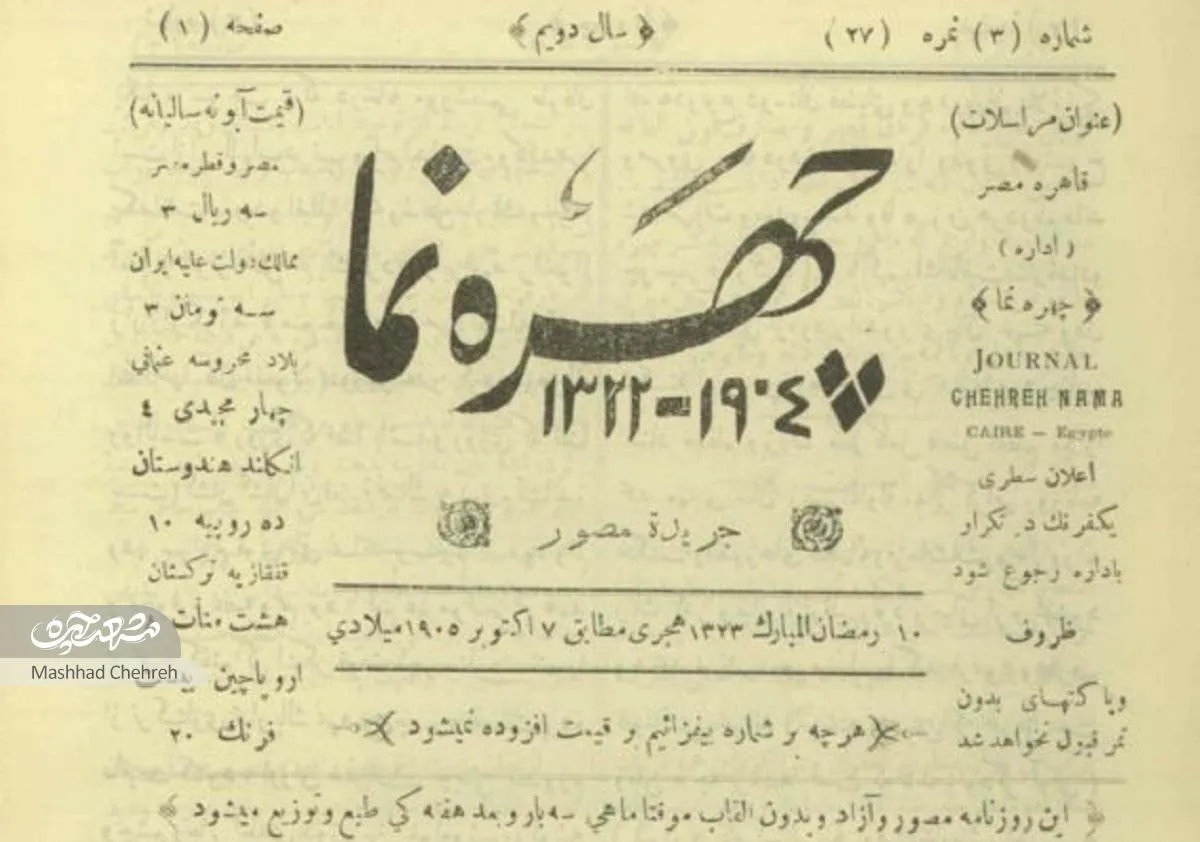 شماره (۳) نمره (۲۷)
﴿ سال دویم ﴾
صفحه (۱)
(عنوان مراسلات)
قاهره مصر
(اداره)
﴿ چهره نما ﴾
JOURNAL
CHEHREH NAMA
CAIRE – Egypte
اعلان سطری
یکفرنك در تکرار
باداره رجوع شود
ظروف
وپاکتهای بدون
تمر قبول نخواهد شد
چهرهٔ نما
۱۳۲۲=۱۹۰٤
جریدة مصور
۱۰ رمضان المبارك ۱۳۲۳ هجری مطابق ۷ اکتوبر ۱۹۰٥ میلادي
هرچه بر شماره بیفزائیم بر قیمت افزوده نمیشود
(قیمت آبونه سالیانه)
مصر و قطر مصر
سه ریال ۳
ممالك دولت علیه ایران
سه تومان ۳
بلاد محروسه عثمانی
چهار مجیدی ٤
انکلند هندوستان
ده روپیه ۱۰
قفقازیه ترکستان
هشت منأت
اروپا چین
فرنك ۲۰
﴿ این روزنامه مصور و آزاد و بدون القاب موقتا ماهی سه بار و بعد هفته کی طبع و توزیع میشود ﴾
مشهد چهره
Mashhad Chehreh